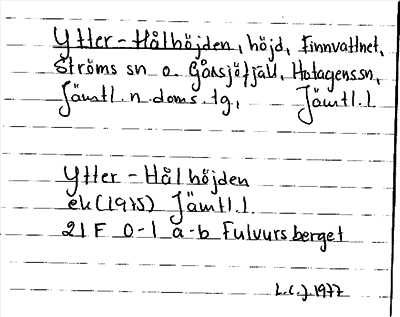 Ytter-Hålhöjden, höjd, Finnvattnet,
Ströms sn o. Gåxsjöfjäll, Hotagens sn,
Jämtl. n. doms. tg, Jämtl. l
Ytter-Hålhöjden
ek (1975) Jämtl. l.
21 F 0-1 a-b Fulvursberget
L.C.J. 1977